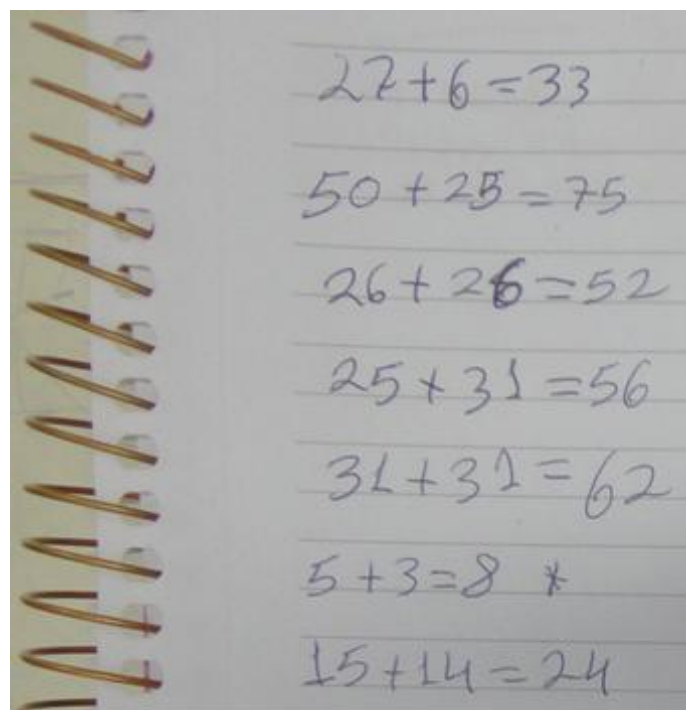 27+6=33
50+25=75
26+26=52
25+31=56
31+31=62
5+3=8 *
15+14=24